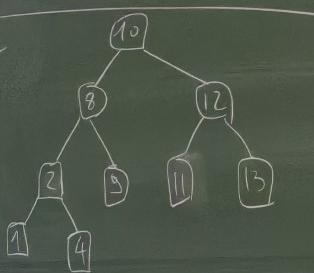 10
8 12
2 9 11 13
1 4